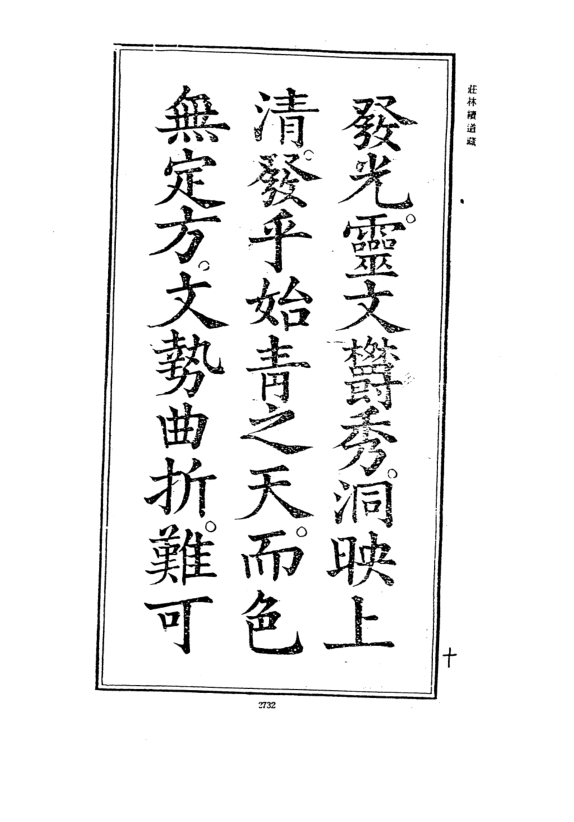 莊林續道藏
發光。靈文欝秀。洞映上
清。發乎始青之天。而色
無定方。文勢曲折。難可
十
2732